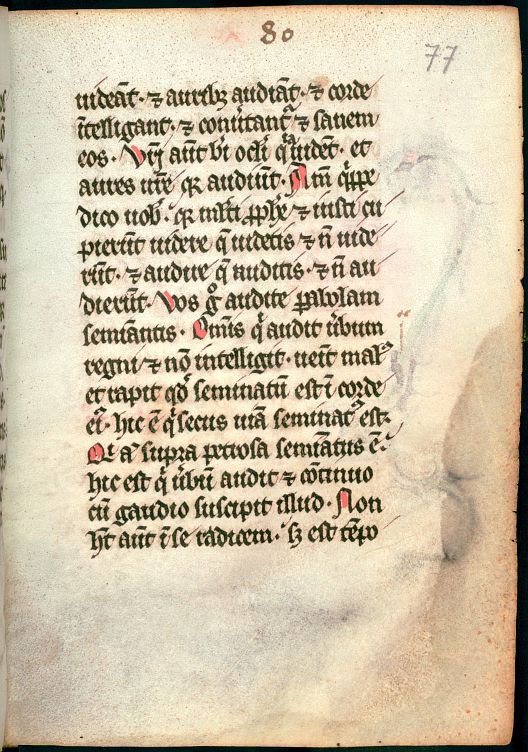 80
77
uideāt · ⁊ auribꝫ audiāt · ⁊ corde
ītelligant · ⁊ conuertant̉ ⁊ sanem
eos · Vr̄i aūt b̄i oculi qͥa uidēt · et
aures ur̄e qꝛ audiūt · Am̄ qͥppe
dico uob̄ · qꝛ ml̓ti ꝓph̄e ⁊ iusti cu
pierūt uidere q̄ uidetis ⁊ n̄ uide
rūt · ⁊ audire q̄ auditis · ⁊ n̄ au
dierūt · Vos gͦ audite ꝑabolam
semīantis · Omīs qͥ audit ūbum
regni ⁊ nō intelligit · uenit malꝰ
et rapit qd̓ seminatū est ī corde
eiꝰ · hic ē qͥ secus uiā seminatꝰ est ·
Qi aͣ supra petrosa semīatus ē ·
hic est qͥ ūbū audit ⁊ cōtinuo
cū gaudio suscipit illud · Non
h̄t aūt ī se radicem · sꝫ est tēpo